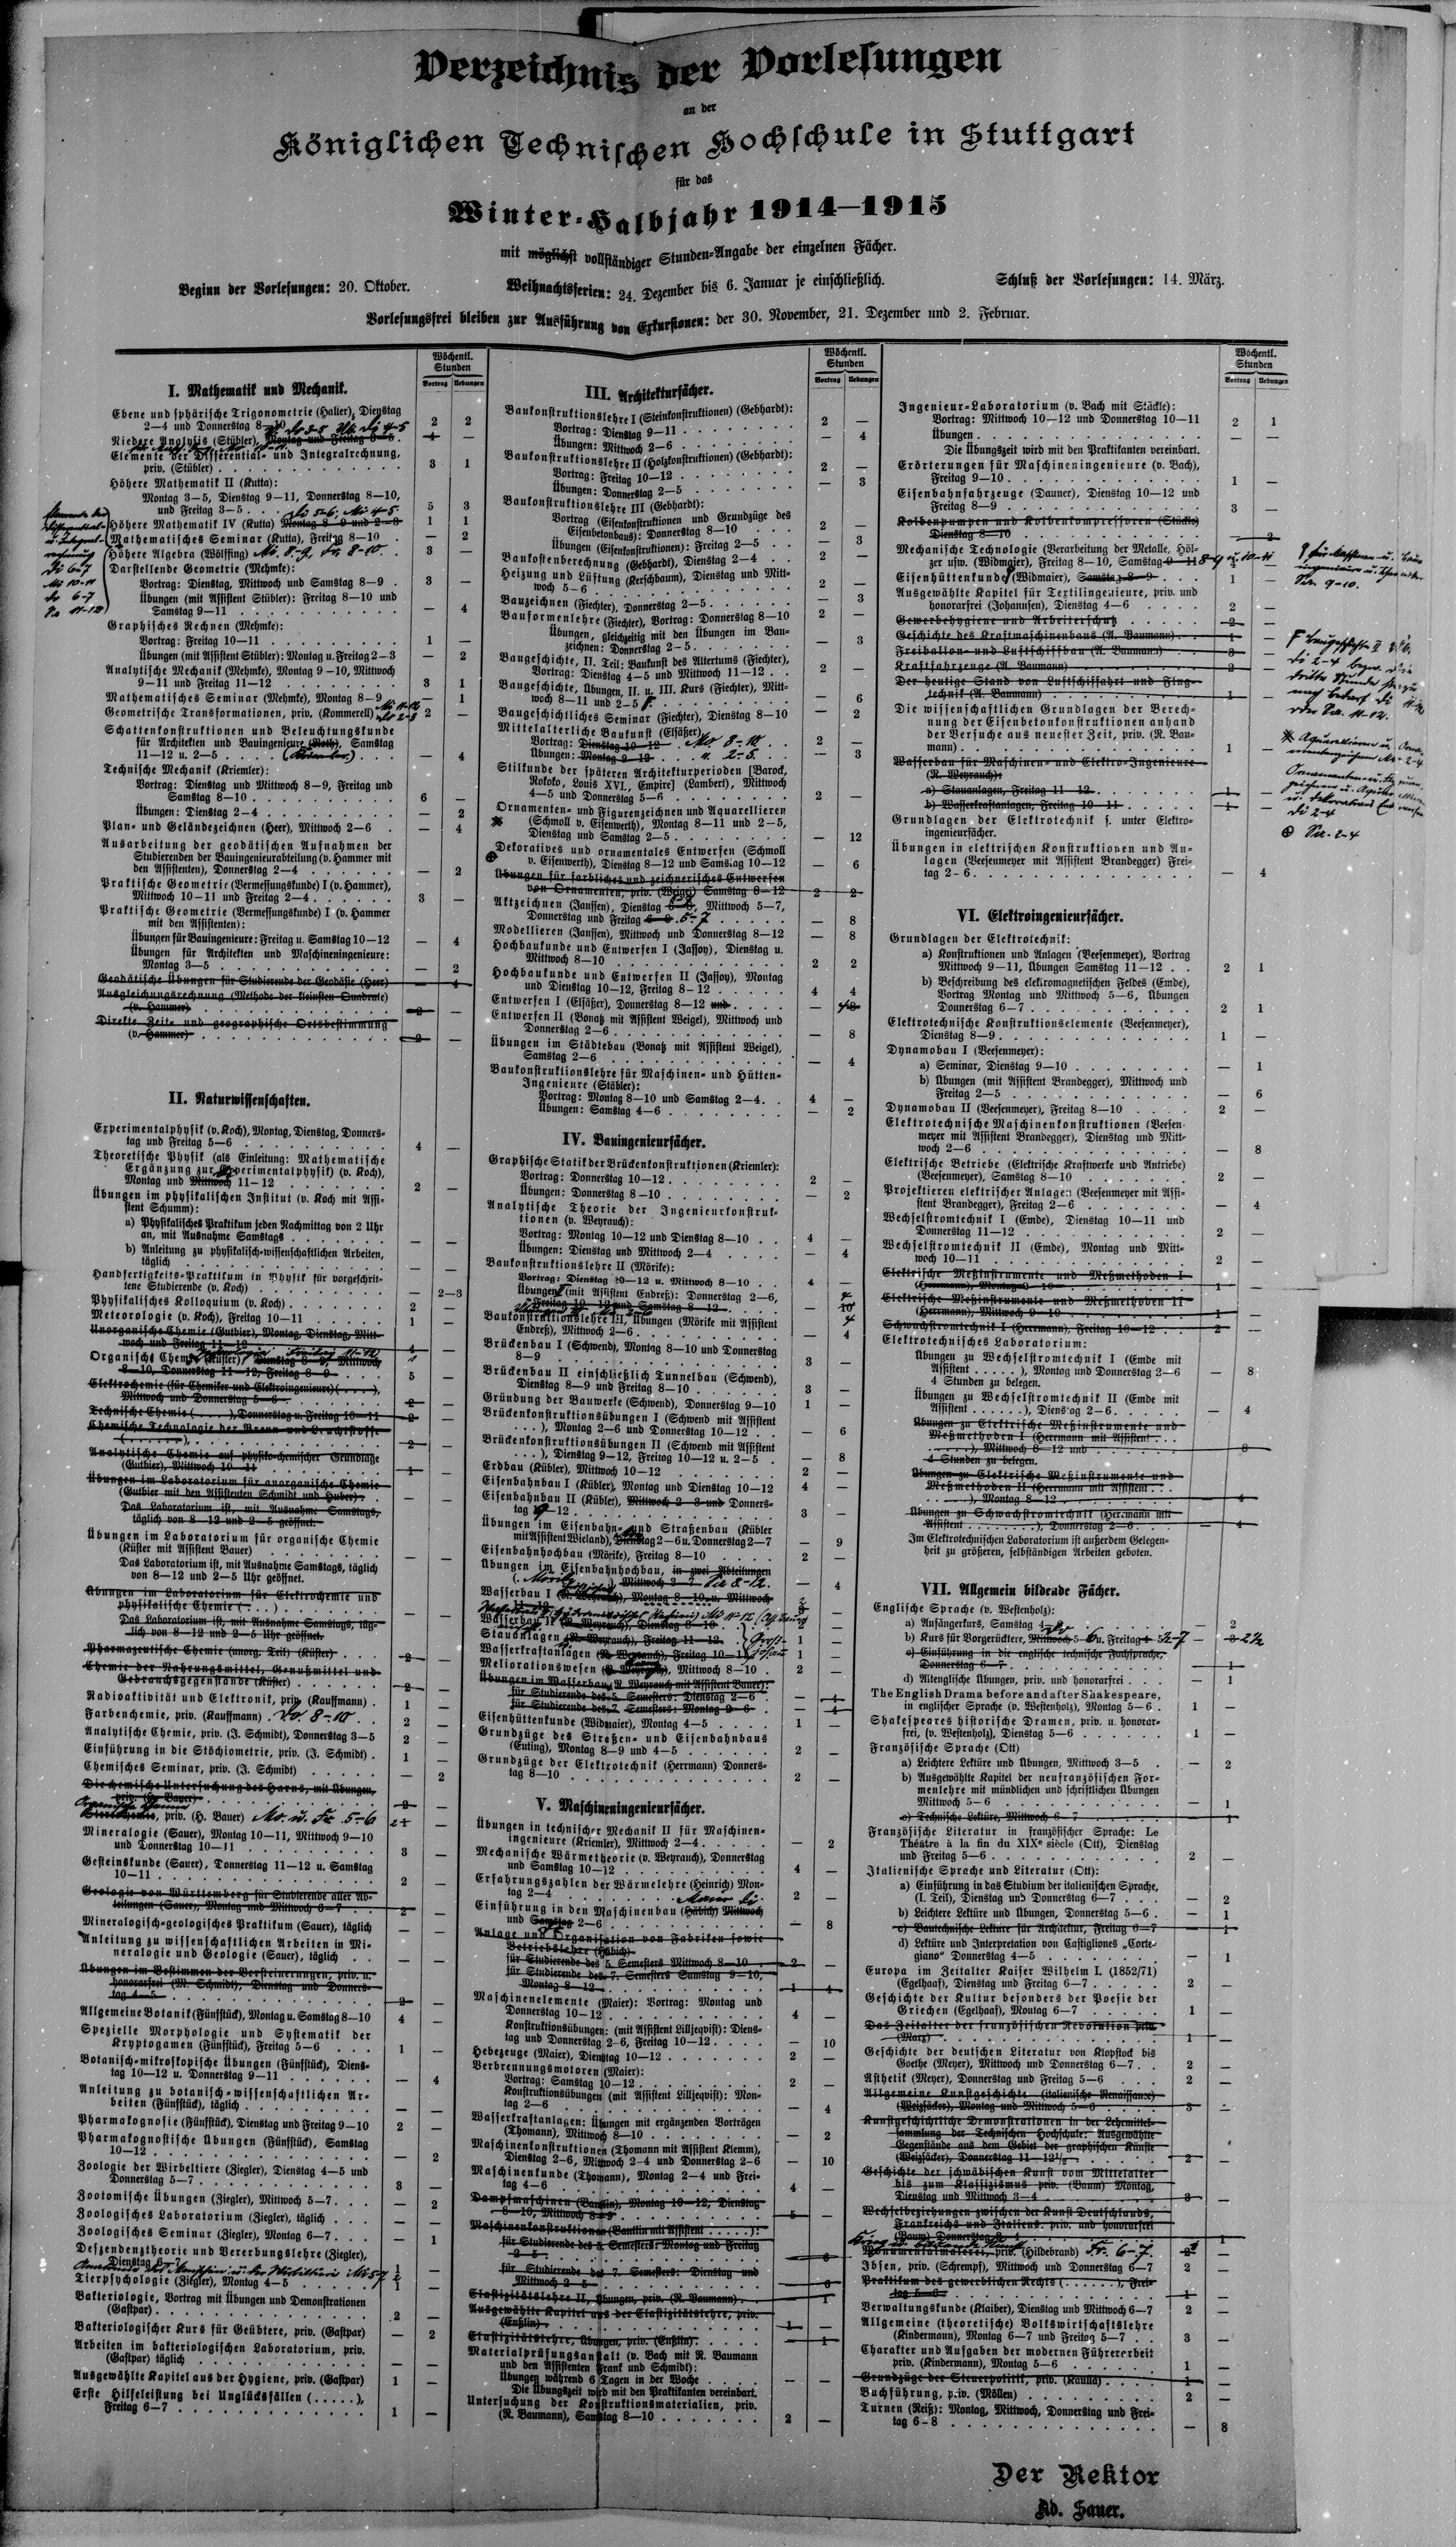 Verzeichnis der Vorlesungen
an der
Königlichen Technischen Hochschule in Stuttgart
für das
Winter-Halbjahr 1914—1915
mit möglichst vollständiger Stunden-Angabe der einzelnen Fächer.
Beginn der Vorlesungen: 20. Oktober. Weihnachtsferien: 24. Dezember bis 6. Januar je einschließlich. Schluß der Vorlesungen: 14. März.
Vorlesungsfrei bleiben zur Ausführung von Exkursionen: der 30. November, 21. Dezember und 2. Februar.
Wöchentl.
Stunden
Vortrag Uebungen
I. Mathematik und Mechanik.
Ebene und sphärische Trigonometrie (Halter), Dienstag
2—4 und Donnerstag 8—10 2 2
Niedere Analysis (Stübler), Montag und Freitag
Elemente der Differential- und Integralrechnung,
priv. (Stübler) 3 1
Höhere Mathematik II (Kutta):
Montag 3—5, Dienstag 9—11, Donnerstag 8—10,
und Freitag 3—5 5 3
Höhere Mathematik IV (Kutta) Montag 8—9 und 2—3 1 1
Mathematisches Seminar (Kutta), Freitag 8—10 — 2
Höhere Algebra (Wölffing) Mi. 8-9, Fr. 8-10 3 —
Darstellende Geometrie (Mehmke):
Vortrag: Dienstag, Mittwoch und Samstag 8—9 3 —
Übungen (mit Assistent Stübler): Freitag 8—10 und
Samstag 9—11 — 4
Graphisches Rechnen (Mehmke):
Vortrag: Freitag 10—11 1 —
Übungen (mit Assistent Stübler): Montag u. Freitag 2—3 — 2
Analytische Mechanik (Mehmke), Montag 9—10, Mittwoch
9—11 und Freitag 11—12 3 1
Mathematisches Seminar (Mehmke), Montag 8—9 — 1
Geometrische Transformationen, priv. (Kommerell) 2 —
Schattenkonstruktionen und Beleuchtungskunde
für Architekten und Bauingenieure (Roth), Samstag
11—12 u. 2—5 — 4
Technische Mechanik (Kriemler):
Vortrag: Dienstag und Mittwoch 8—9, Freitag und
Samstag 8—10 6 —
Übungen: Dienstag 2—4 — 2
Plan- und Geländezeichnen (Heer), Mittwoch 2—6 — 4
Ausarbeitung der geodätischen Aufnahmen der
Studierenden der Bauingenieurabteilung (v. Hammer mit
den Assistenten), Donnerstag 2—4 — 2
Praktische Geometrie (Vermessungskunde) I (v. Hammer),
Mittwoch 10—11 und Freitag 2—4 3 —
Praktische Geometrie (Vermessungskunde) I (v. Hammer
mit den Assistenten):
Übungen für Bauingenieure: Freitag u. Samstag 10—12 — 4
Übungen für Architekten und Maschineningenieure:
Montag 3—5 — 2
Geodätische Übungen für Studierende der Geodäsie (Heer) — 4
Ausgleichungsrechnung (Methode der kleinsten Quadrate)
(v. Hammer) 2 —
Direkte Zeit- und geographische Ortsbestimmung
(v. Hammer) 2 —
II. Naturwissenschaften.
Experimentalphysik (v. Koch), Montag, Dienstag, Donners-
tag und Freitag 5—6 4 —
Theoretische Physik (als Einleitung: Mathematische
Ergänzung zur Experimentalphysik) (v. Koch),
Montag und Mittwoch 11—12 2 —
Übungen im physikalischen Institut (v. Koch mit Assi-
stent Schumm):
a) Physikalisches Praktikum jeden Nachmittag von 2 Uhr
an, mit Ausnahme Samstags — —
b) Anleitung zu physikalisch-wissenschaftlichen Arbeiten,
täglich — —
Handfertigkeits-Praktikum in Physik für vorgeschrit-
tene Studierende (v. Koch) — 2—3
Physikalisches Kolloquium (v. Koch) 2 —
Meteorologie (v. Koch), Freitag 10—11 1 —
Unorganische Chemie (Gutbier), Montag, Dienstag, Mitt-
woch und Freitag 11—12 4 —
Organische Chemie (Küster), Dienstag 8—9, Mittwoch
8—10, Donnerstag 11—12, Freitag 8—9 5 —
Elektrochemie (für Chemiker und Elektroingenieure) (.....),
Mittwoch und Donnerstag 5—6 2 —
Technische Chemie (.....), Donnerstag u. Freitag 10—11 2 —
Chemische Technologie der Brenn- und Leuchtstoffe
(.......) 2 —
Analytische Chemie auf physiko-chemischer Grundlage
(Gutbier), Mittwoch 10—11 1 —
Übungen im Laboratorium für anorganische Chemie
(Gutbier mit den Assistenten Schmidt und Huber) — —
Das Laboratorium ist, mit Ausnahme Samstags,
täglich von 8—12 und 2—5 geöffnet.
Übungen im Laboratorium für organische Chemie
(Küster mit Assistent Bauer) — —
Das Laboratorium ist, mit Ausnahme Samstags, täglich
von 8—12 und 2—5 Uhr geöffnet.
Übungen im Laboratorium für Elektrochemie und
physikalische Chemie (....) — —
Das Laboratorium ist, mit Ausnahme Samstags, täg-
lich von 8—12 und 2—5 Uhr geöffnet.
Pharmazeutische Chemie (unorg. Teil) (Küster) 2 —
Chemie der Nahrungsmittel, Genußmittel und
Gebrauchsgegenstände (Küster) 2 —
Radioaktivität und Elektronik, priv. (Kauffmann) 1 —
Farbenchemie, priv. (Kauffmann) Do. 8-10 2 —
Analytische Chemie, priv. (J. Schmidt), Donnerstag 3—5 2 —
Einführung in die Stöchiometrie, priv. (J. Schmidt) 1 —
Chemisches Seminar, priv. (J. Schmidt) — 2
Die chemische Untersuchung des Harns, mit Übungen,
priv. (H. Bauer) 2 —
priv. (H. Bauer) Mo. u. Fr. 5-6
Mineralogie (Sauer), Montag 10—11, Mittwoch 9—10
und Donnerstag 10—11 3 —
Gesteinskunde (Sauer), Donnerstag 11—12 u. Samstag
10—11 2 —
Geologie von Württemberg für Studierende aller Ab-
teilungen (Sauer), Montag und Mittwoch 6—7 2 —
Mineralogisch-geologisches Praktikum (Sauer), täglich — —
Anleitung zu wissenschaftlichen Arbeiten in Mi-
neralogie und Geologie (Sauer), täglich — —
Übungen im Bestimmen der Versteinerungen, priv. u.
honorarfrei (M. Schmidt), Dienstag und Donners-
tag 4—5 2 —
Allgemeine Botanik (Fünfstück), Montag u. Samstag 8—10 4 —
Spezielle Morphologie und Systematik der
Kryptogamen (Fünfstück), Freitag 5—6 1 —
Botanisch-mikroskopische Übungen (Fünfstück), Diens-
tag 10—12 u. Donnerstag 9—11 — 4
Anleitung zu botanisch-wissenschaftlichen Ar-
beiten (Fünfstück), täglich — —
Pharmakognosie (Fünfstück), Dienstag und Freitag 9—10 2 —
Pharmakognostische Übungen (Fünfstück), Samstag
10—12 — 2
Zoologie der Wirbeltiere (Ziegler), Dienstag 4—5 und
Donnerstag 5—7 3 —
Zootomische Übungen (Ziegler), Mittwoch 5—7 — 2
Zoologisches Laboratorium (Ziegler), täglich — —
Zoologisches Seminar (Ziegler), Montag 6—7 — 1
Deszendenztheorie und Vererbungslehre (Ziegler),
Dienstag 1 —
Tierpsychologie (Ziegler), Montag 4—5 1 —
Bakteriologie, Vortrag mit Übungen und Demonstrationen
(Gastpar) 2 —
Bakteriologischer Kurs für Geübtere, priv. (Gastpar) — 2
Arbeiten im bakteriologischen Laboratorium, priv.
(Gastpar) täglich — —
Ausgewählte Kapitel aus der Hygiene, priv. (Gastpar) 1 —
Erste Hilfeleistung bei Unglücksfällen (.....),
Freitag 6—7 1 —
Wöchentl.
Stunden
Vortrag Uebungen
III. Architekturfächer.
Baukonstruktionslehre I (Steinkonstruktionen) (Gebhardt):
Vortrag: Dienstag 9—11 2 —
Übungen: Mittwoch 2—6 — 4
Baukonstruktionslehre II (Holzkonstruktionen) (Gebhardt):
Vortrag: Freitag 10—12 2 —
Übungen: Donnerstag 2—5 — 3
Baukonstruktionslehre III (Gebhardt):
Vortrag (Eisenkonstruktionen und Grundzüge des
Eisenbetonbaus): Donnerstag 8—10 2 —
Übungen (Eisenkonstruktionen): Freitag 2—5 — 3
Baukostenberechnung (Gebhardt), Dienstag 2—4 2 —
Heizung und Lüftung (Kerschbaum), Dienstag und Mitt-
woch 5—6 2 —
Bauzeichnen (Fiechter), Donnerstag 2—5 — 3
Bauformenlehre (Fiechter), Vortrag: Donnerstag 8—10 2 —
Übungen, gleichzeitig mit den Übungen im Bau-
zeichnen: Donnerstag 2—5 — 3
Baugeschichte, II. Teil: Baukunst des Altertums (Fiechter),
Vortrag: Dienstag 4—5 und Mittwoch 11—12 2 —
Baugeschichte, Übungen, II. u. III. Kurs (Fiechter), Mitt-
woch 8—11 und 2—5 — 6
Baugeschichtliches Seminar (Fiechter), Dienstag 8—10 — 2
Mittelalterliche Baukunst (Elsäßer)
Vortrag: Dienstag 10—12 Mo. 8-10. 2 —
Übungen: Montag 9—12 u. 2-5. — 3
Stilkunde der späteren Architekturperioden [Barock,
Rokoko, Louis XVI., Empire] (Lambert), Mittwoch
4—5 und Donnerstag 5—6 2 —
Ornamenten- und Figurenzeichnen und Aquarellieren
(Schmoll v. Eisenwerth), Montag 8—11 und 2—5,
Dienstag und Samstag 2—5 — 12
Dekoratives und ornamentales Entwerfen (Schmoll
v. Eisenwerth), Dienstag 8—12 und Samstag 10—12 — 6
Übungen für farbliches und zeichnerisches Entwerfen
von Ornamenten, priv. (Weigel) Samstag 8—12 2 2
Aktzeichnen (Janssen), Dienstag, Mittwoch 5—7,
Donnerstag und Freitag 5-7 — 8
Modellieren (Janssen), Mittwoch und Donnerstag 8—12 — 8
Hochbaukunde und Entwerfen I (Jassoy), Dienstag u.
Mittwoch 8—10 2 2
Hochbaukunde und Entwerfen II (Jassoy), Montag
und Dienstag 10—12, Freitag 8—12 4 4
Entwerfen I (Elsäßer), Donnerstag 8—12 und
Entwerfen II (Bonatz mit Assistent Weigel), Mittwoch und
Donnerstag 2—6 — 8
Übungen im Städtebau (Bonatz mit Assistent Weigel),
Samstag 2—6 — 4
Baukonstruktionslehre für Maschinen- und Hütten-
Ingenieure (Stäbler):
Vortrag: Montag 8—10 und Samstag 2—4 4 —
Übungen: Samstag 4—6 — 2
IV. Bauingenieurfächer.
Graphische Statik der Brückenkonstruktionen (Kriemler):
Vortrag: Donnerstag 10—12 2 —
Übungen: Donnerstag 8—10 — 2
Analytische Theorie der Ingenieurkonstruk-
tionen (v. Weyrauch):
Vortrag: Montag 10—12 und Dienstag 8—10 4 —
Übungen: Dienstag und Mittwoch 2—4 — 4
Baukonstruktionslehre II (Mörike):
Vortrag: Dienstag 10—12 u. Mittwoch 8—10 4 —
Übungen (mit Assistent Endreß): Donnerstag 2—6,
Freitag 10—12 und Samstag 8—12 — 10
Baukonstruktionslehre III, Übungen (Mörike mit Assistent
Endreß), Mittwoch 2—6 — 4
Brückenbau I (Schwend), Montag 8—10 und Donnerstag
8—9 3 —
Brückenbau II einschließlich Tunnelbau (Schwend),
Dienstag 8—9 und Freitag 8—10 3 —
Gründung der Bauwerke (Schwend), Donnerstag 9—10 1 —
Brückenkonstruktionsübungen I (Schwend mit Assistent
....), Montag 2—6 und Donnerstag 10—12 — 6
Brückenkonstruktionsübungen II (Schwend mit Assistent
....), Dienstag 9—12, Freitag 10—12 u. 2—5 — 8
Erdbau (Kübler), Mittwoch 10—12 2 —
Eisenbahnbau I (Kübler), Montag und Dienstag 10—12 4 —
Eisenbahnbau II (Kübler), Mittwoch 2—3 und Donners-
tag 9—12 3 —
Übungen im Eisenbahn- und Straßenbau (Kübler
mit Assistent Wieland), Dienstag 2—6 u. Donnerstag 2—7 — 9
Eisenbahnhochbau (Mörike), Freitag 8—10 2 —
Übungen im Eisenbahnhochbau, in zwei Abteilungen
(Mörike), Mittwoch 3—7 — 4
Wasserbau I (R. Weyrauch), Montag 8—10 u. Mittwoch
Wasserbau II (R. Weyrauch), Dienstag 8—10
Stauanlagen (R. Weyrauch), Freitag 11—12 1 —
Wasserkraftanlagen (R. Weyrauch), Freitag 10—11 1 —
Meliorationswesen (R. Weyrauch), Mittwoch 8—10 2 —
Übungen im Wasserbau (R. Weyrauch mit Assistent Bauer):
für Studierende des 5. Semesters: Dienstag 2—6 — 4
für Studierende des 7. Semesters: Montag 2—6 — 4
Eisenhüttenkunde (Widmaier), Montag 4—5 1 —
Grundzüge des Straßen- und Eisenbahnbaus
(Euting), Montag 8—9 und 4—5 2 —
Grundzüge der Elektrotechnik (Herrmann) Donners-
tag 8—10 2 —
V. Maschineningenieurfächer.
Übungen in technischer Mechanik II für Maschinen-
ingenieure (Kriemler), Mittwoch 2—4 — 2
Mechanische Wärmetheorie (v. Weyrauch), Donnerstag
und Samstag 10—12 4 —
Erfahrungszahlen der Wärmelehre (Heinrich) Mon-
tag 2—4 2 —
Einführung in den Maschinenbau (Häbich) Mittwoch
und Samstag 2—6 — 8
Anlage und Organisation von Fabriken sowie
Betriebslehre (Häbich)
für Studierende des 5. Semesters Mittwoch 8—10 2 —
für Studierende des 7. Semesters Samstag 9—10,
Montag 8—12 1 4
Maschinenelemente (Maier): Vortrag: Montag und
Donnerstag 10—12 4 —
Konstruktionsübungen: (mit Assistent Lilljeqvist): Diens-
tag und Donnerstag 2—6, Freitag 10—12 — 10
Hebezeuge (Maier), Dienstag 10—12 2 —
Verbrennungsmotoren (Maier):
Vortrag: Samstag 10—12 2 —
Konstruktionsübungen (mit Assistent Lilljeqvist): Mon-
tag 2—6 — 4
Wasserkraftanlagen: Übungen mit ergänzenden Vorträgen
(Thomann), Mittwoch 8—10 — 2
Maschinenkonstruktionen (Thomann mit Assistent Klemm),
Dienstag 2—6, Mittwoch 2—4 und Donnerstag 2—6 — 10
Maschinenkunde (Thomann), Montag 2—4 und Frei-
tag 4—6 4 —
Dampfmaschinen (Bantlin), Montag 10—12, Dienstag
8—10, Mittwoch 8—9 5 —
Maschinenkonstruktionen (Bantlin mit Assistent .....):
für Studierende des 5. Semesters: Montag und Freitag
2—5 — 6
für Studierende des 7. Semesters: Dienstag und
Mittwoch 2—5 — 6
Elastizitätslehre II, Übungen, priv. (R. Baumann) — 1
Ausgewählte Kapitel aus der Elastizitätslehre, priv.
(Enßlin) 1 —
Elastizitätslehre, Übungen, priv. (Enßlin) — 1
Materialprüfungsanstalt (v. Bach mit R. Baumann
und den Assistenten Frank und Schmidt):
Übungen während 6 Tagen in der Woche — —
Die Übungszeit wird mit den Praktikanten vereinbart.
Untersuchung der Konstruktionsmaterialien, priv.
(R. Baumann), Samstag 8—10 2 —
Wöchentl.
Stunden
Vortrag Uebungen
Ingenieur-Laboratorium (v. Bach mit Stäckle):
Vortrag: Mittwoch 10—12 und Donnerstag 10—11 2 1
Übungen — —
Die Übungszeit wird mit den Praktikanten vereinbart.
Erörterungen für Maschineningenieure (v. Bach),
Freitag 9—10 1 —
Eisenbahnfahrzeuge (Dauner), Dienstag 10—12 und
Freitag 8—9 3 —
Kolbenpumpen und Kolbenkompressoren (Stäckle)
Dienstag 8—10 — 2
Mechanische Technologie (Verarbeitung der Metalle, Höl-
zer usw. (Widmaier), Freitag 8—10, Samstag 9—11
Eisenhüttenkunde (Widmaier), Samstag 8—9 1 —
Ausgewählte Kapitel für Textilingenieure, priv. und
honorarfrei (Johannsen), Dienstag 4—6 2 —
Gewerbehygiene und Arbeiterschutz 2 —
Geschichte des Kraftmaschinenbaus (A. Baumann) 1 —
Freiballon- und Luftschiffbau (A. Baumann) 3 —
Kraftfahrzeuge (A. Baumann) 2 —
Der heutige Stand von Luftschiffahrt und Flug-
technik (A. Baumann) 1 —
Die wissenschaftlichen Grundlagen der Berech-
nung der Eisenbetonkonstruktionen anhand
der Versuche aus neuester Zeit, priv. (R. Bau-
mann) 1 —
Wasserbau für Maschinen- und Elektro-Ingenieure
(R. Weyrauch):
a) Stauanlagen, Freitag 11—12 1 —
b) Wasserkraftanlagen, Freitag 10—11 1 —
Grundlagen der Elektrotechnik s. unter Elektro-
ingenieurfächer.
Übungen in elektrischen Konstruktionen und An-
lagen (Veesenmeyer mit Assistent Brandegger) Frei-
tag 2—6 — 4
VI. Elektroingenieurfächer.
Grundlagen der Elektrotechnik:
a) Konstruktionen und Anlagen (Veesenmeyer), Vortrag
Mittwoch 9—11, Übungen Samstag 11—12 2 1
b) Beschreibung des elektromagnetischen Feldes (Emde),
Vortrag Montag und Mittwoch 5—6, Übungen
Donnerstag 6—7 2 1
Elektrotechnische Konstruktionselemente (Veesenmeyer),
Dienstag 8—9 1 —
Dynamobau I (Veesenmeyer):
a) Seminar, Dienstag 9—10 — 1
b) Übungen (mit Assistent Brandegger), Mittwoch und
Freitag 2—5 — 6
Dynamobau II (Veesenmeyer), Freitag 8—10 2 —
Elektrotechnische Maschinenkonstruktionen (Veesen-
meyer mit Assistent Brandegger), Dienstag und Mitt-
woch 2—6 — 8
Elektrische Betriebe (Elektrische Kraftwerke und Antriebe)
(Veesenmeyer), Samstag 8—10 2 —
Projektieren elektrischer Anlagen (Veesenmeyer mit Assi-
stent Brandegger), Freitag 2—6 — 4
Wechselstromtechnik I (Emde), Dienstag 10—11 und
Donnerstag 11—12 2 —
Wechselstromtechnik II (Emde), Montag und Mitt-
woch 10—11 2 —
Elektrische Meßinstrumente und Meßmethoden I
(Herrmann), Montag 9—10 1 —
Elektrische Meßinstrumente und Meßmethoden II
(Herrmann), Mittwoch 9—10 1 —
Schwachstromtechnik I (Herrmann), Freitag 10—12 2 —
Elektrotechnisches Laboratorium:
Übungen zu Wechselstromtechnik I (Emde mit
Assistent ......), Montag und Donnerstag 2—6 — 8
4 Stunden zu belegen.
Übungen zu Wechselstromtechnik II (Emde mit
Assistent ......), Dienstag 2—6 — 4
Übungen zu Elektrische Meßinstrumente und
Meßmethoden I (Herrmann mit Assistent ...
......), Mittwoch 8—12 und — 8
4 Stunden zu belegen.
Übungen zu Elektrische Meßinstrumente und
Meßmethoden II (Herrmann mit Assistent ...
......), Montag 8—12 — 4
Übungen zu Schwachstromtechnik (Herrmann mit
Assistent ......), Donnerstag 2—6 — 4
Im Elektrotechnischen Laboratorium ist außerdem Gelegen-
heit zu größeren, selbständigen Arbeiten geboten.
VII. Allgemein bildende Fächer.
Englische Sprache (v. Westenholz):
a) Anfängerkurs, Samstag — 2
b) Kurs für Vorgerücktere, Mittwoch 5—6 u. Freitag
c) Einführung in die englische technische Fachsprache,
Donnerstag 6—7 — 1
d) Altenglische Übungen, priv. und honorarfrei — 1
The English Drama before and after Shakespeare,
in englischer Sprache (v. Westenholz), Montag 5—6 1 —
Shakespeares historische Dramen, priv. u. honorar-
frei, (v. Westenholz), Dienstag 5—6 1 —
Französische Sprache (Ott)
a) Leichtere Lektüre und Übungen, Mittwoch 3—5 — 2
b) Ausgewählte Kapitel der neufranzösischen For-
menlehre mit mündlichen und schriftlichen Übungen
Mittwoch 5—6 — 1
c) Technische Lektüre, Mittwoch 6—7 — 1
Französische Literatur in französischer Sprache: Le
Théâtre à la fin du XIXe siècle (Ott), Dienstag
und Freitag 5—6 2 —
Italienische Sprache und Literatur (Ott):
a) Einführung in das Studium der italienischen Sprache,
(I. Teil), Dienstag und Donnerstag 6—7 — 2
b) Leichtere Lektüre und Übungen, Donnerstag 5—6 — 1
c) Bautechnische Lektüre für Architektur, Freitag 6—7 — 1
d) Lektüre und Interpretation von Castigliones „Corte-
giano“ Donnerstag 4—5 — 1
Europa im Zeitalter Kaiser Wilhelm I. (1852/71)
(Egelhaaf), Dienstag und Freitag 6—7 2 —
Geschichte der Kultur besonders der Poesie der
Griechen (Egelhaaf), Montag 6—7 1 —
Das Zeitalter der französischen Revolution priv.
(Marx) 1 —
Geschichte der deutschen Literatur von Klopstock bis
Goethe (Meyer), Mittwoch und Donnerstag 6—7 2 —
Ästhetik (Meyer), Donnerstag und Freitag 5—6 2 —
Allgemeine Kunstgeschichte (italienische Renaissance)
(Weizsäcker), Montag und Mittwoch 5—6 3 —
Kunstgeschichtliche Demonstrationen in der Lehrmittel-
sammlung der Technischen Hochschule: Ausgewählte
Gegenstände aus dem Gebiet der graphischen Künste
(Weizsäcker), Donnerstag 11—12½ 2 —
Geschichte der schwäbischen Kunst vom Mittelalter
bis zum Klassizismus priv. (Baum) Montag,
Dienstag und Mittwoch 3—4 3 —
Wechselbeziehungen zwischen der Kunst Deutschlands,
Frankreichs und Italiens, priv. und honorarfrei
(Baum) Donnerstag 3—4 1 —
Monumentalmalerei, priv. (Hildebrand) Fr. 6-7
Ibsen, priv. (Schrempf), Mittwoch und Donnerstag 6—7 2 —
Praktikum des gewerblichen Rechts (......), Frei-
tag 5—6 1 —
Verwaltungskunde (Klaiber), Dienstag und Mittwoch 6—7 2 —
Allgemeine (theoretische) Volkswirtschaftslehre
(Kindermann), Montag 6—7 und Freitag 5—7 3 —
Charakter und Aufgaben der modernen Führerarbeit
priv. (Kindermann), Montag 5—6 1 —
Grundzüge der Steuerpolitik, priv. (Kaulla) 1 —
Buchführung, priv. (Möllen) 2 —
Turnen (Reiß): Montag, Mittwoch, Donnerstag und Frei-
tag 6—8 — 8
Der Rektor
Ad. Sauer.